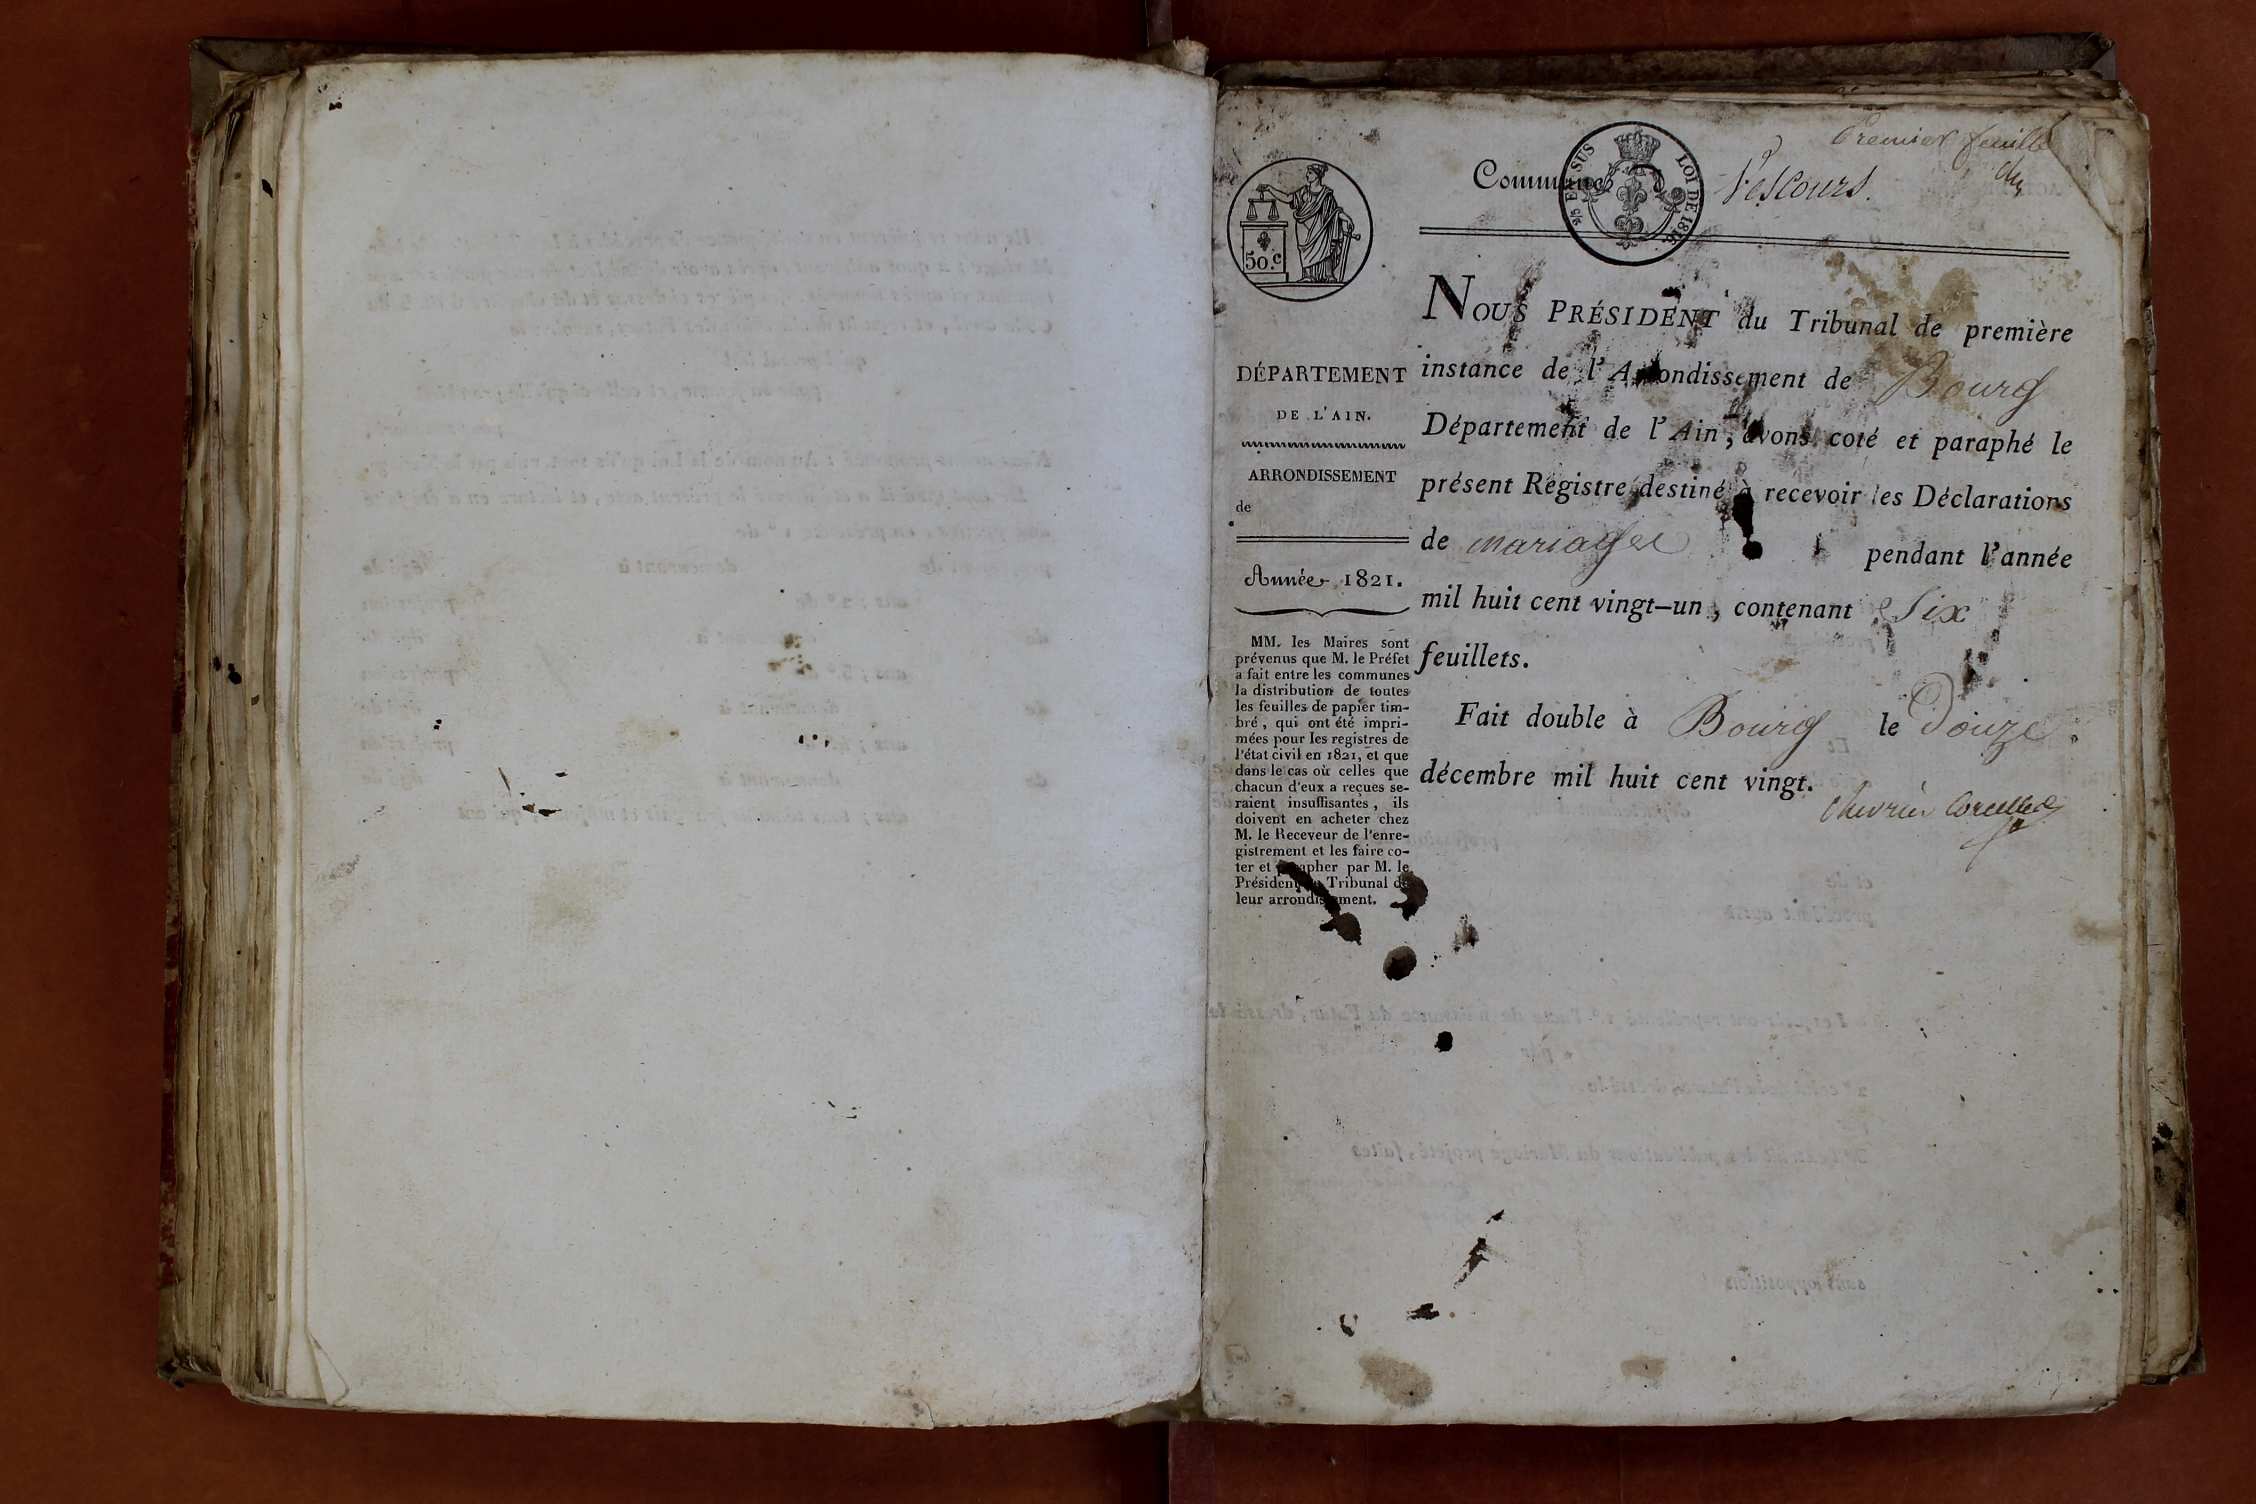 Premier feuillet
Commune Vescours.
EN SUS LOI DE 1816
50.c
NOUS PRÉSIDENT du Tribunal de première
instance de l'Arrondissement de Bourg
Département de l'Ain, avons coté et paraphé le
présent Régistre destiné à recevoir les Déclarations
de mariages pendant l'année
mil huit cent vingt-un, contenant Six
feuillets.
Fait double à Bourg le Douze
décembre mil huit cent vingt.
Chevrier Corcelles
DÉPARTEMENT
DE L'AIN.
ARRONDISSEMENT
de
Année 1821.
MM. les Maires sont
prévenus que M. le Préfet
a fait entre les communes
la distribution de toutes
les feuilles de papier tim-
bré, qui ont été impri-
mées pour les registres de
l'état civil en 1821, et que
dans le cas où celles que
chacun d'eux a reçues se-
raient insuffisantes, ils
doivent en acheter chez
M. le Receveur de l'enre-
gistrement et les faire co-
ter et parapher par M. le
Président du Tribunal de
leur arrondissement.